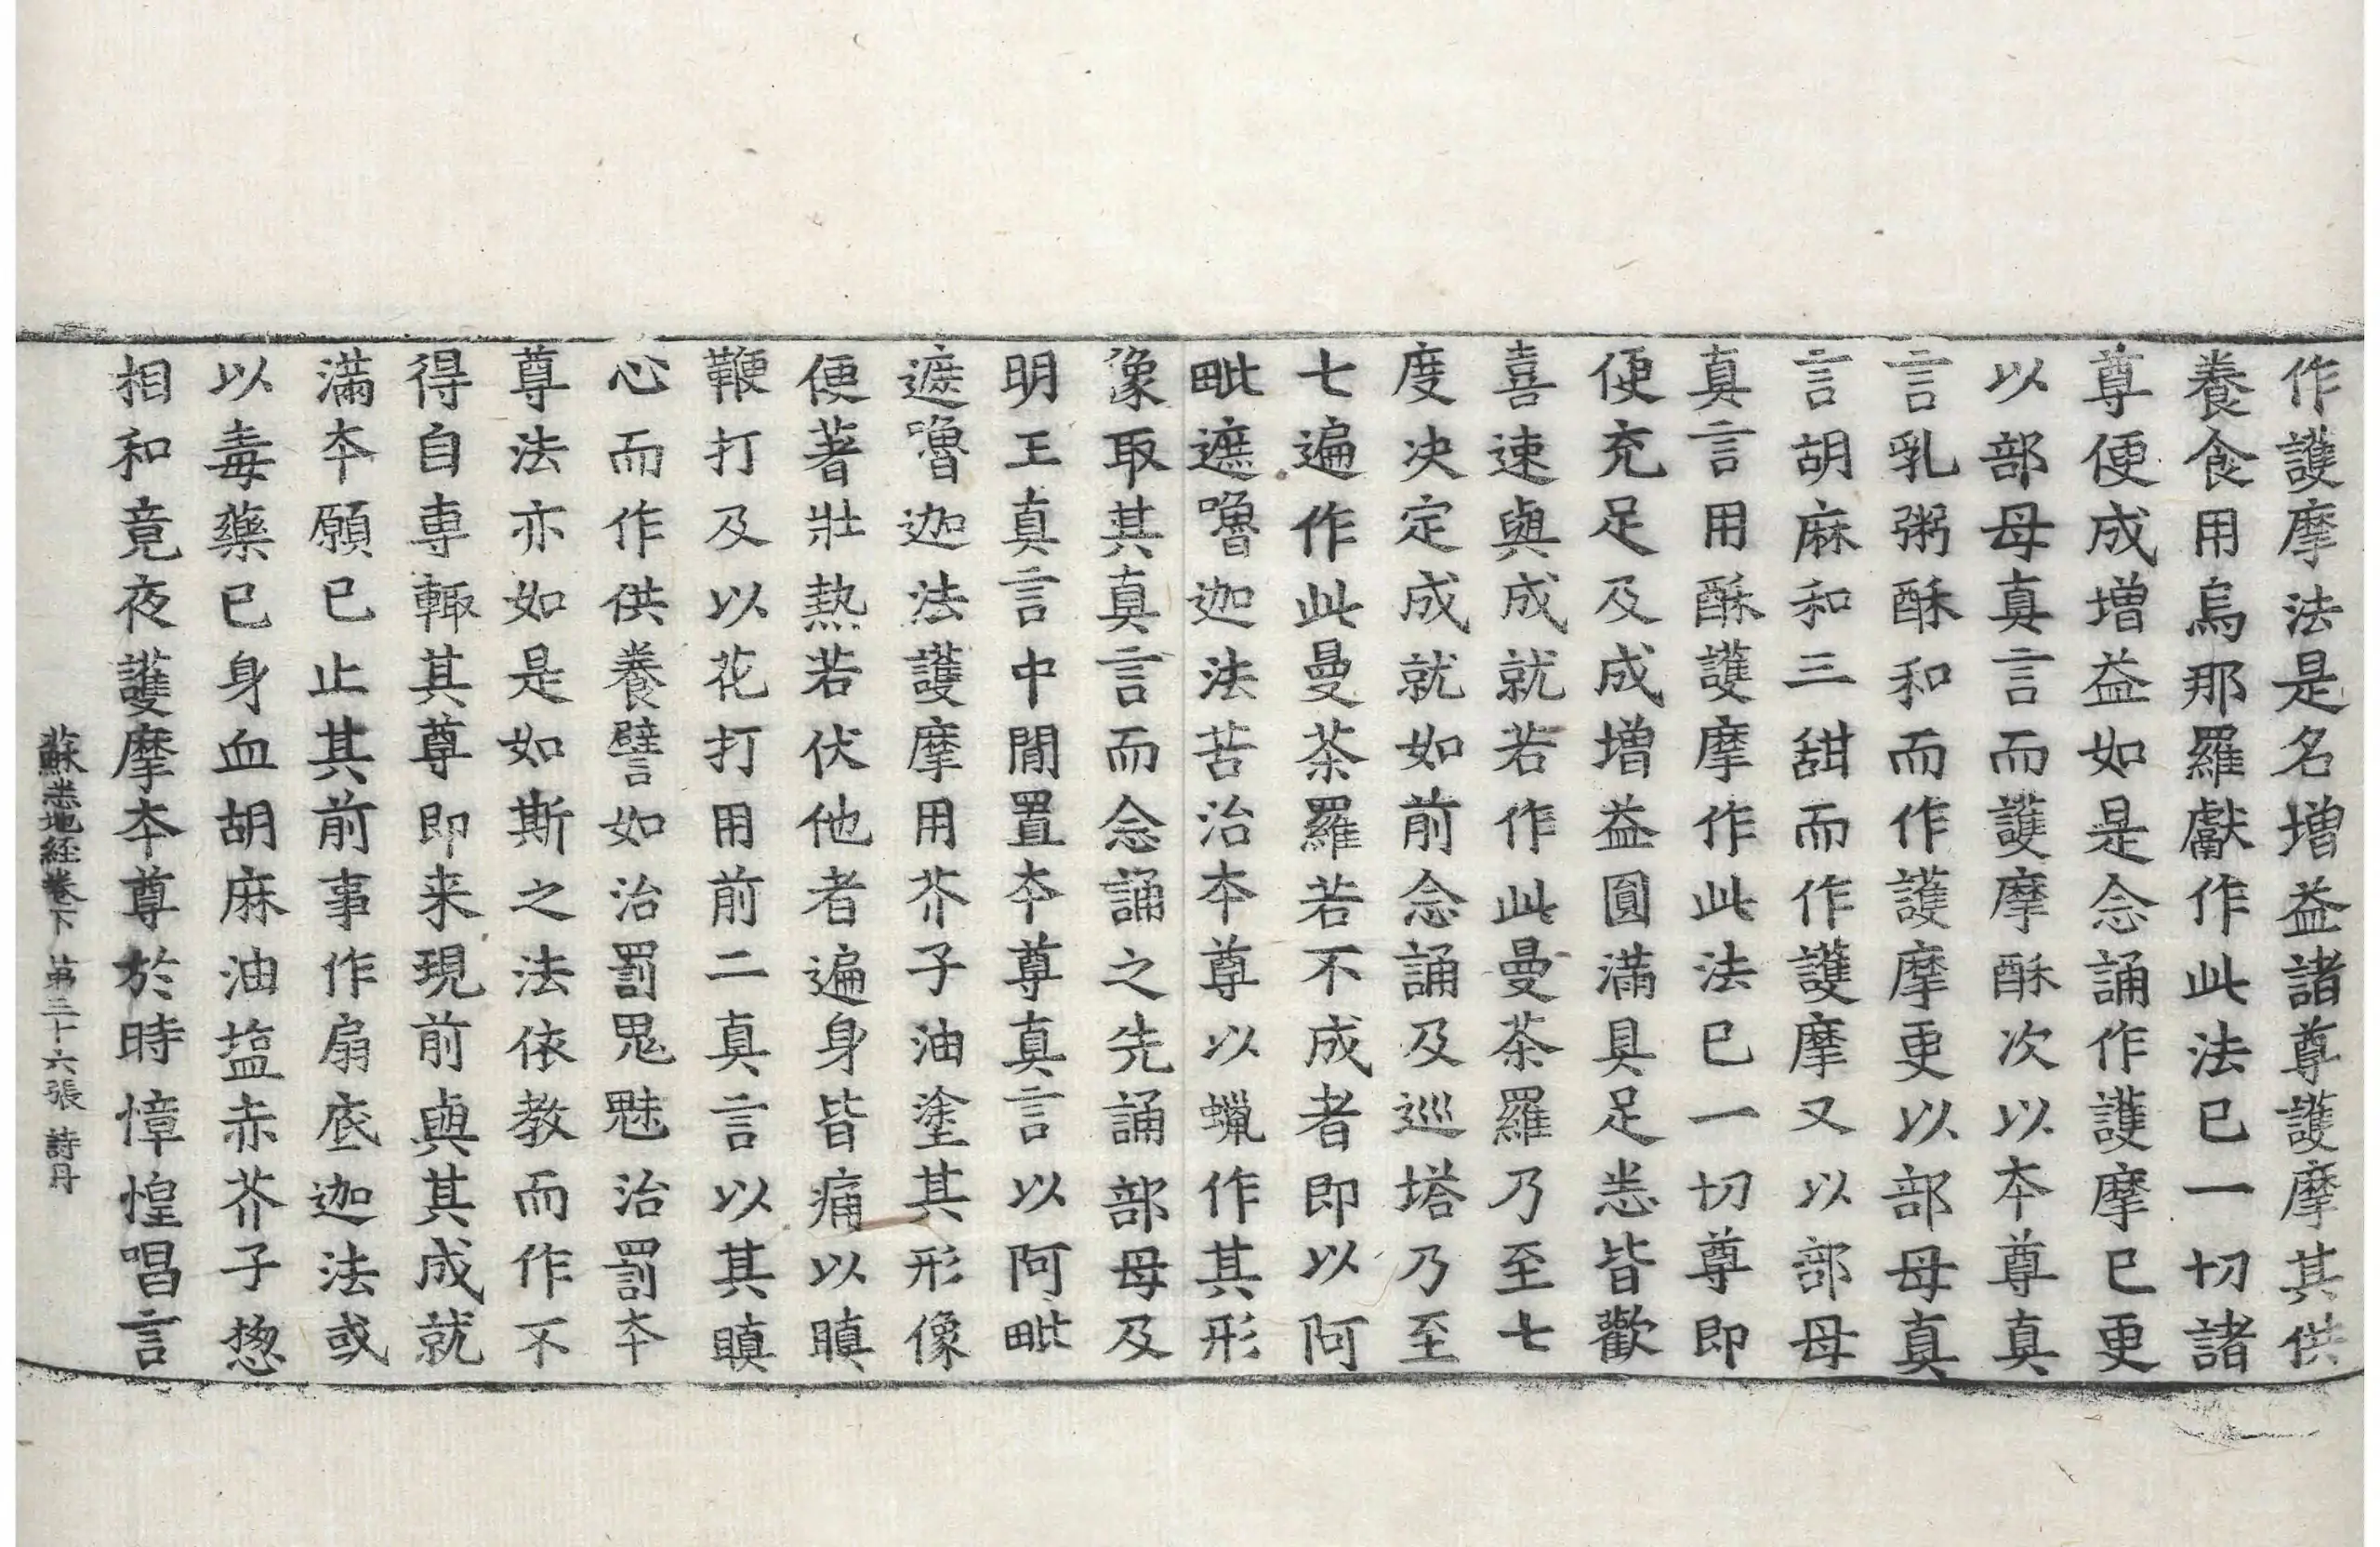 作護摩法是名增益諸尊護摩其供
養食用烏那羅獻作此法已一切諸
尊便成增益如是念誦作護摩已更
以部母真言而護摩酥次以本尊真
言乳粥酥和而作護摩更以部母真
言胡麻和三甜而作護摩又以部母
真言用酥護摩作此法已一切尊即
便充足及成增益圓滿具足悉皆歡
喜速與成就若作此曼荼羅乃至七
度決定成就如前念誦及巡塔乃至
七遍作此曼荼羅若不成者即以阿
毗遮嚕迦法苦治本尊以蠟作其形
像取其真言而念誦之先誦部母及
明王真言中間置本尊真言以阿毗
遮嚕迦法護摩用芥子油塗其形像
便著壯熱若伏他者遍身皆痛以瞋
鞭打及以花打用前二真言以其瞋
心而作供養譬如治罰鬼魅治罰本
尊法亦如是如斯之法依教而作不
得自專輙其尊即来現前與其成就
滿本願已止其前事作扇底迦法或
以毒藥已身血胡麻油塩赤芥子惣
相和竟夜護摩本尊於時慞惶唱言
蘇悉地経卷下 第三十六張 詩丹